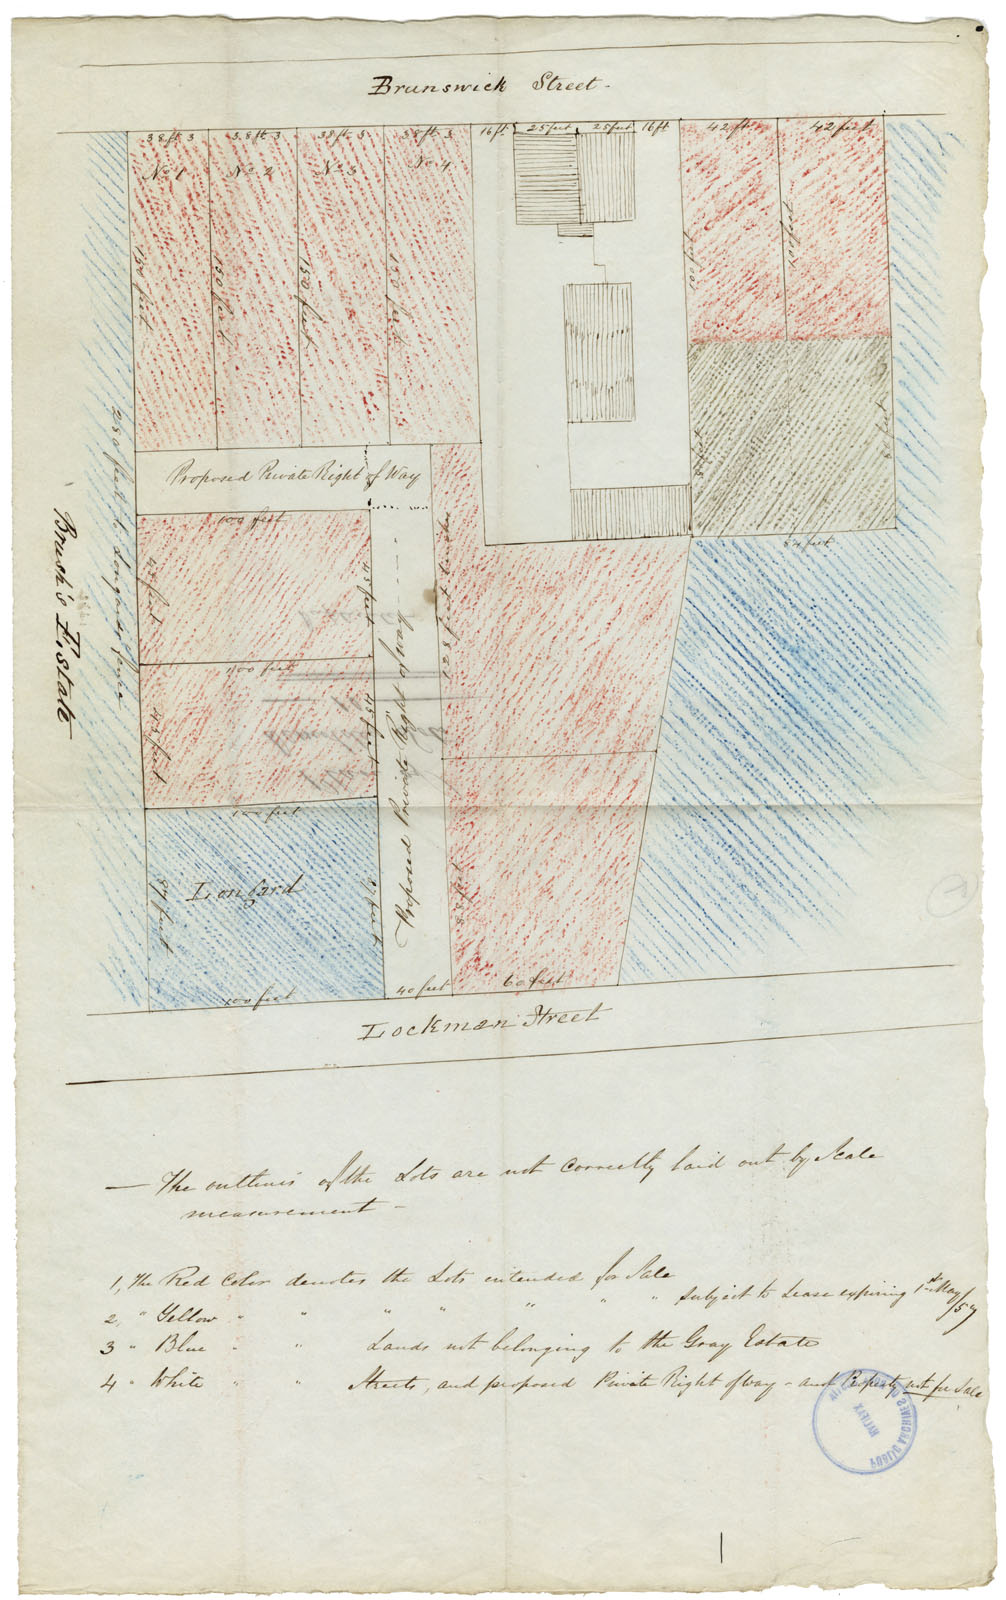 Brunswick Street -
38 ft 3
38 ft 3
38 ft 3
38 ft 3
16 ft
25 feet
25 feet
16 ft
42 ft
42 feet
No 1
No 2
No 3
No 4
150 feet
150 feet
150 feet
150 feet
100 feet
Proposed Private Right of Way
100 feet
45 feet
45 feet
100 feet
45 feet
45 feet
100 feet
Longard
87 feet
100 feet
Proposed Private Right of way
128 feet
84 feet
85 feet
40 feet
60 feet
Brush's Estate
250 feet to Longards fence
Lockman Street
— The outlines of the Lots are not correctly laid out by Scale
measurement -
1, The Red Color denotes the Lots intended for Sale
2, " Yellow " " " " " " " subject to Lease expiring 1st May /57
3 " Blue " " Lands not belonging to the Gray Estate
4 " White " " Streets, and proposed Private Right of way - and Property not for Sale
PUBLIC ARCHIVES OF NOVA SCOTIA
HALIFAX